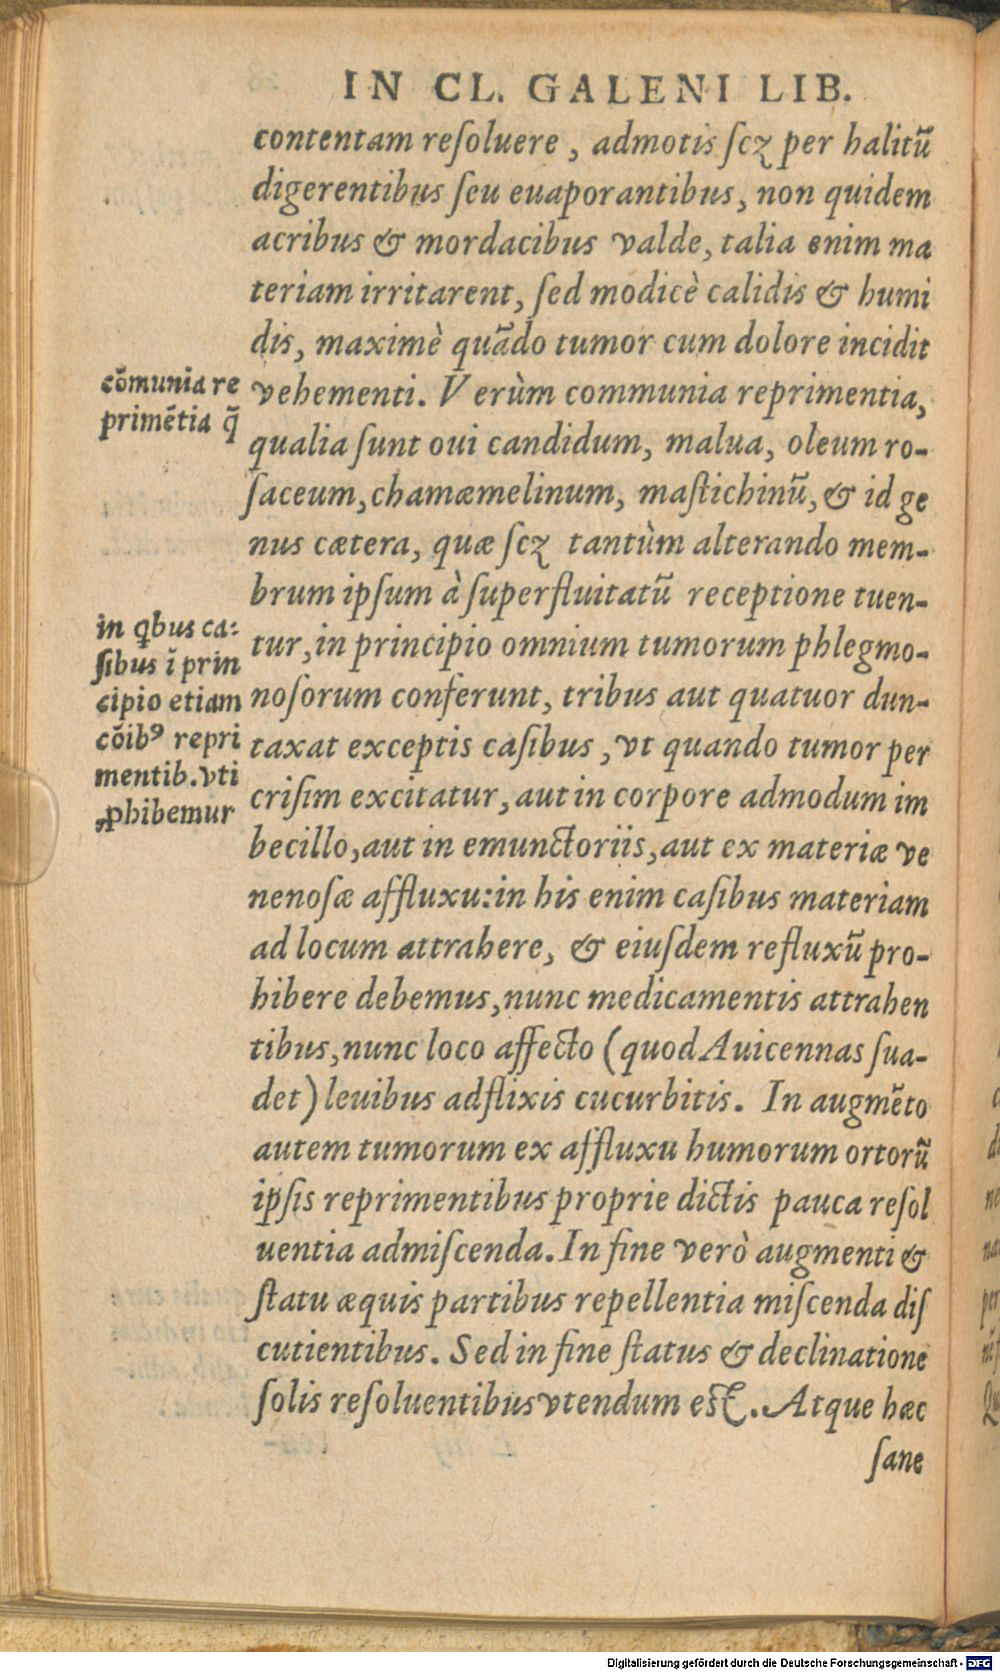 IN CL. GALENI LIB.
contentam reſoluere, admotis ſcꝫ per halitũ
digerentibus ſeu euaporantibus, non quidem
acribus & mordacibus valde, talia enim ma
teriam irritarent, ſed modicè calidis & humi
dis, maximè quãdo tumor cum dolore incidit
vehementi. Verùm communia reprimentia,
qualia ſunt oui candidum, malua, oleum ro-
ſaceum, chamæmelinum, maſtichinũ, & id ge
nus cætera, quæ ſcꝫ tantùm alterando mem-
brum ipſum à ſuperfluitatũ receptione tuen-
tur, in principio omnium tumorum phlegmo-
noſorum conferunt, tribus aut quatuor dun-
taxat exceptis caſibus, vt quando tumor per
criſim excitatur, aut in corpore admodum im
becillo, aut in emunctoriis, aut ex materiæ ve
nenoſæ affluxu: in his enim caſibus materiam
ad locum attrahere, & eiuſdem refluxũ pro-
hibere debemus, nunc medicamentis attrahen
tibus, nunc loco affecto (quod Auicennas ſua-
det) leuibus adflixis cucurbitis. In augmẽto
autem tumorum ex affluxu humorum ortorũ
ipſis reprimentibus proprie dictis pauca reſol
uentia admiſcenda. In fine verò augmenti &
ſtatu æquis partibus repellentia miſcenda diſ
cutientibus. Sed in fine ſtatus & declinatione
ſolis reſoluentibus vtendum eſt. Atque hæc
ſane
cõmunia re
primẽtia q̃
in qbus ca-
ſibus ĩ prin
cipio etiam
cõibꝰ repri
mentib. vti
ꝓhibemur
Digitalisierung gefördert durch die Deutsche Forschungsgemeinschaft - DFG